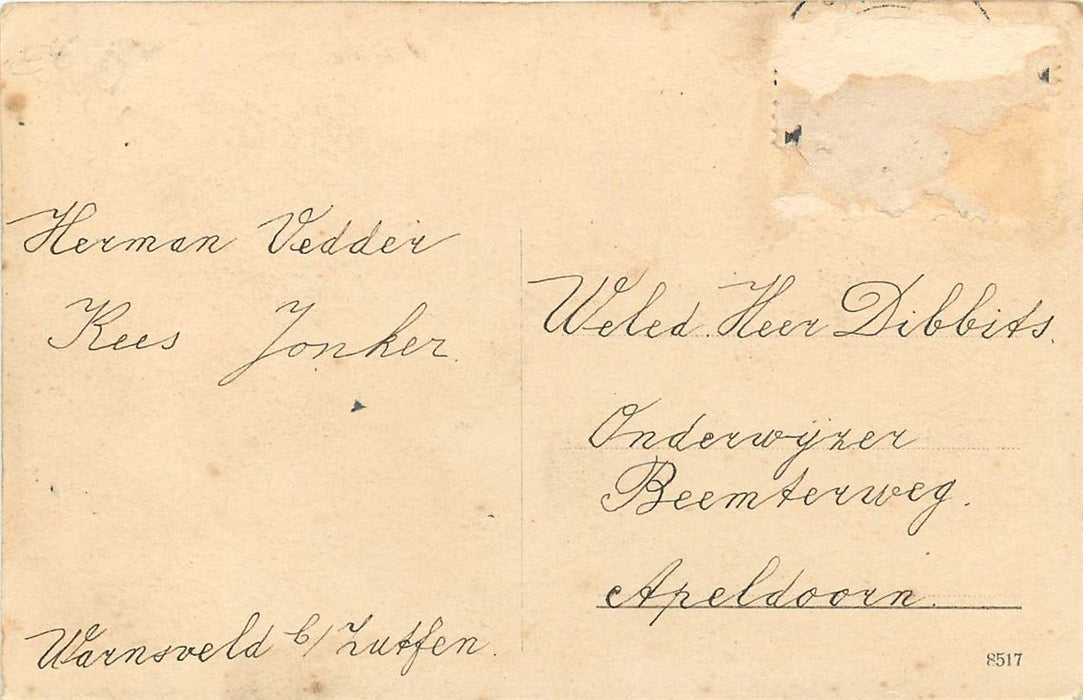 Herman Vedder
Kees Jonker.
Warnsveld b/ Zutfen.
Weled. Heer Dibbits.
Onderwijzer
Beemterweg.
Apeldoorn.
8517